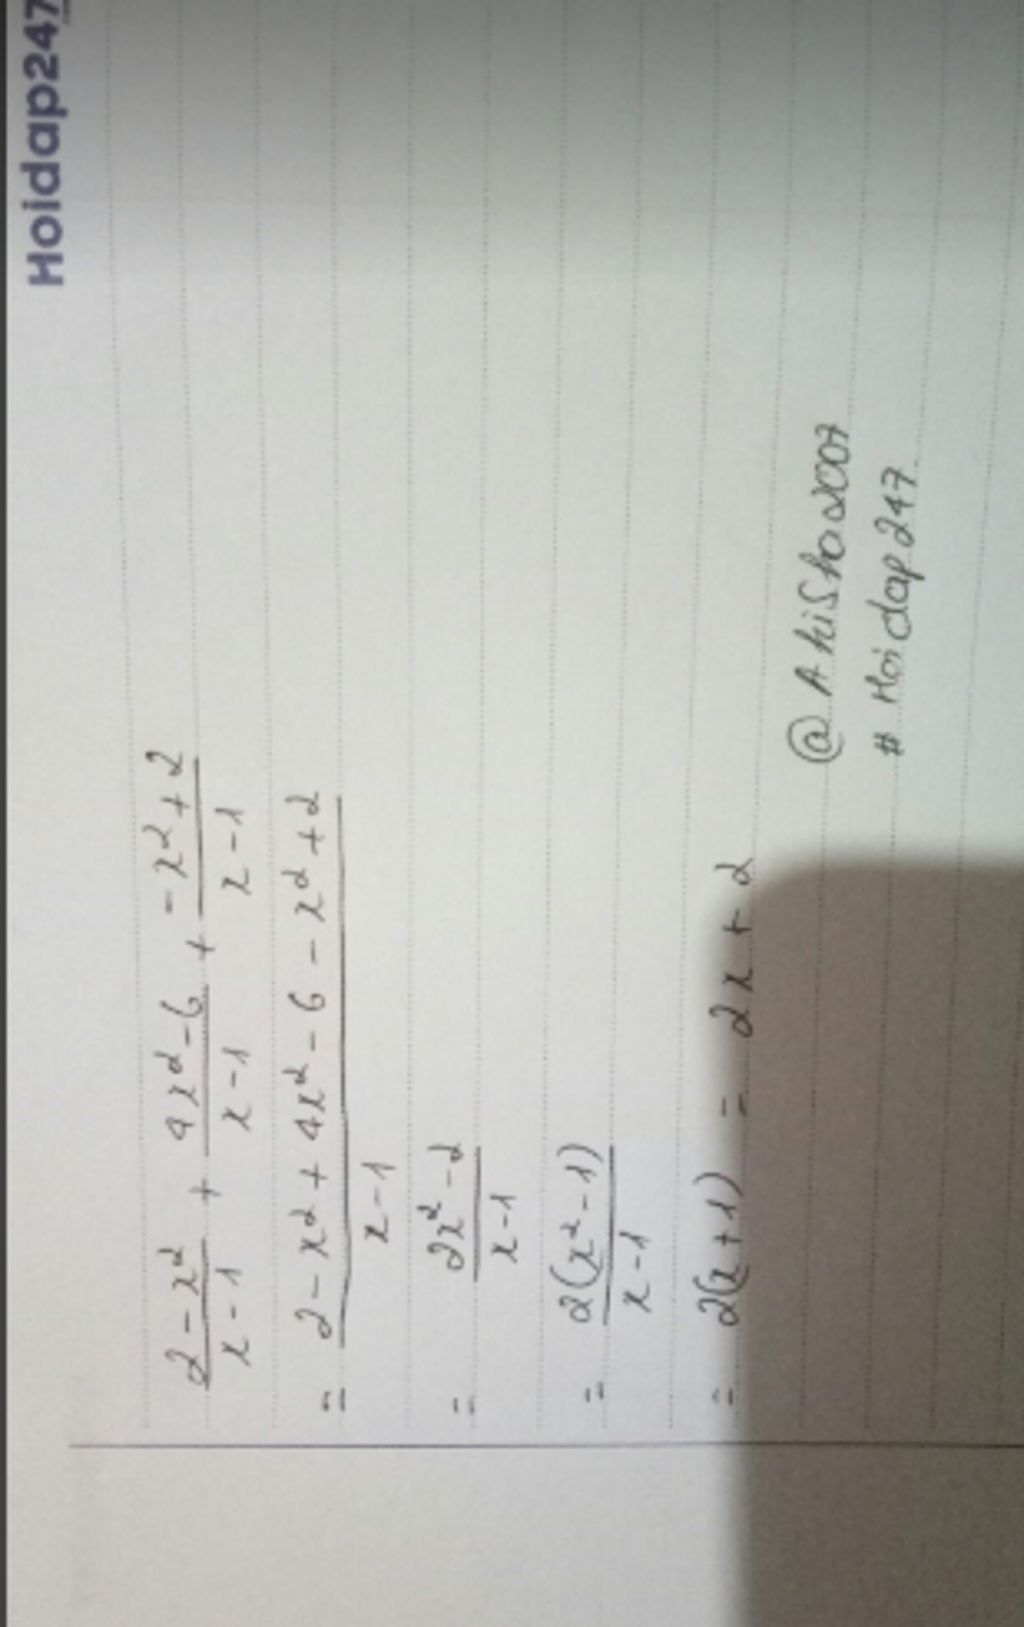 Hoidap247
(2-x²)/(x-1) + (4x²-6)/(x-1) + (-x²+2)/(x-1)
= (2-x²+4x²-6-x²+2)/(x-1)
= (2x²-2)/(x-1)
= 2(x²-1)/(x-1)
= 2(x+1) = 2x+2
@Akisto2007
# Hoidap247